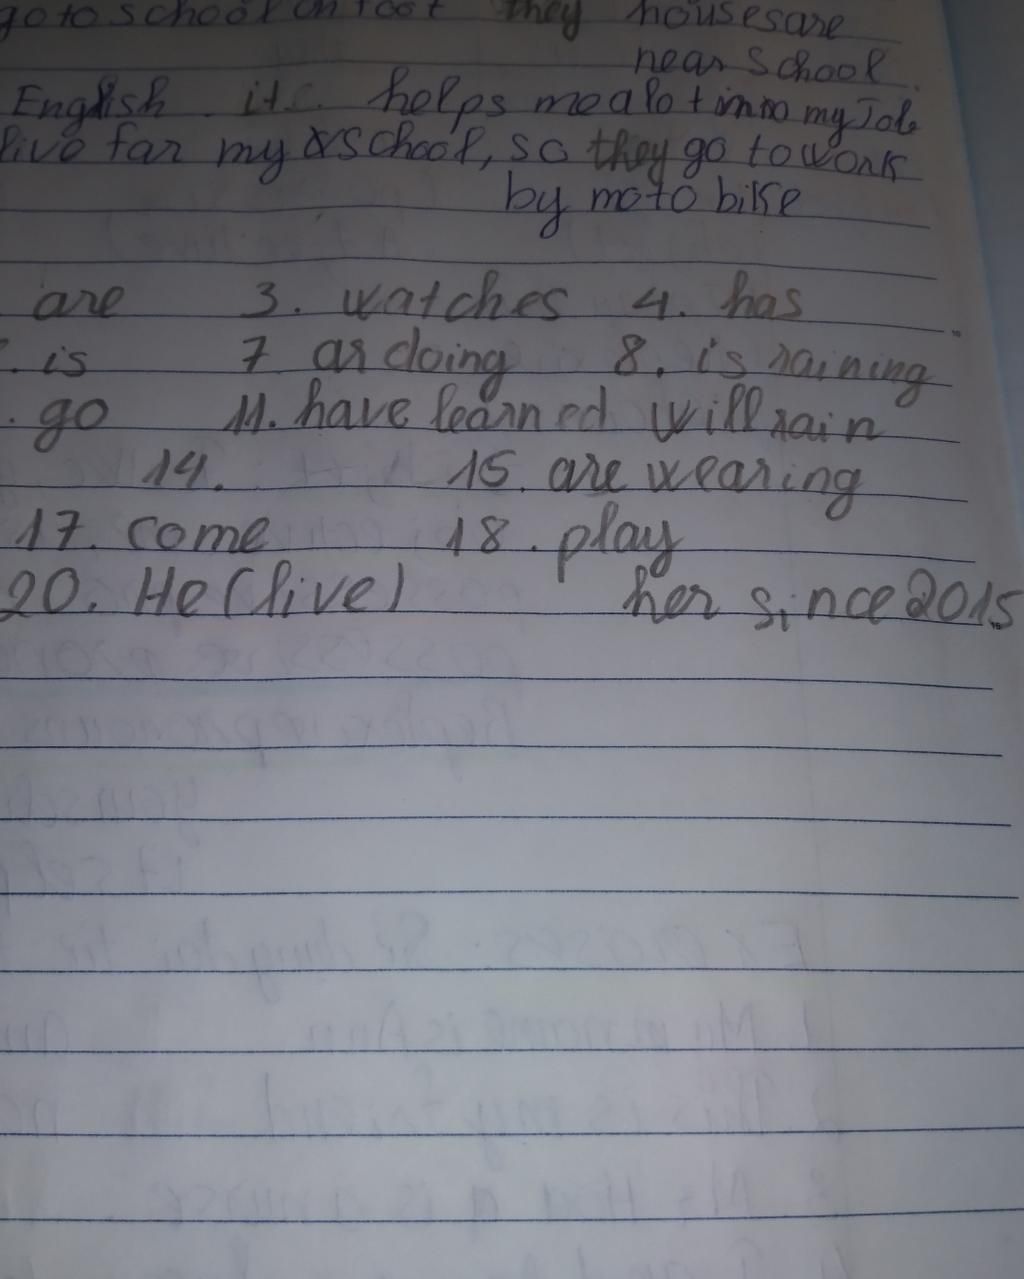 go to school on foot they houses are
near school
English it helps me a lot in my Job
live far my school, so they go to work
by moto bike
are 3. watches 4. has
. is 7 as doing 8. is raining
. go 11. have learned will rain
14. 15. are wearing
17. come 18. play
20. He (live) her since 2015